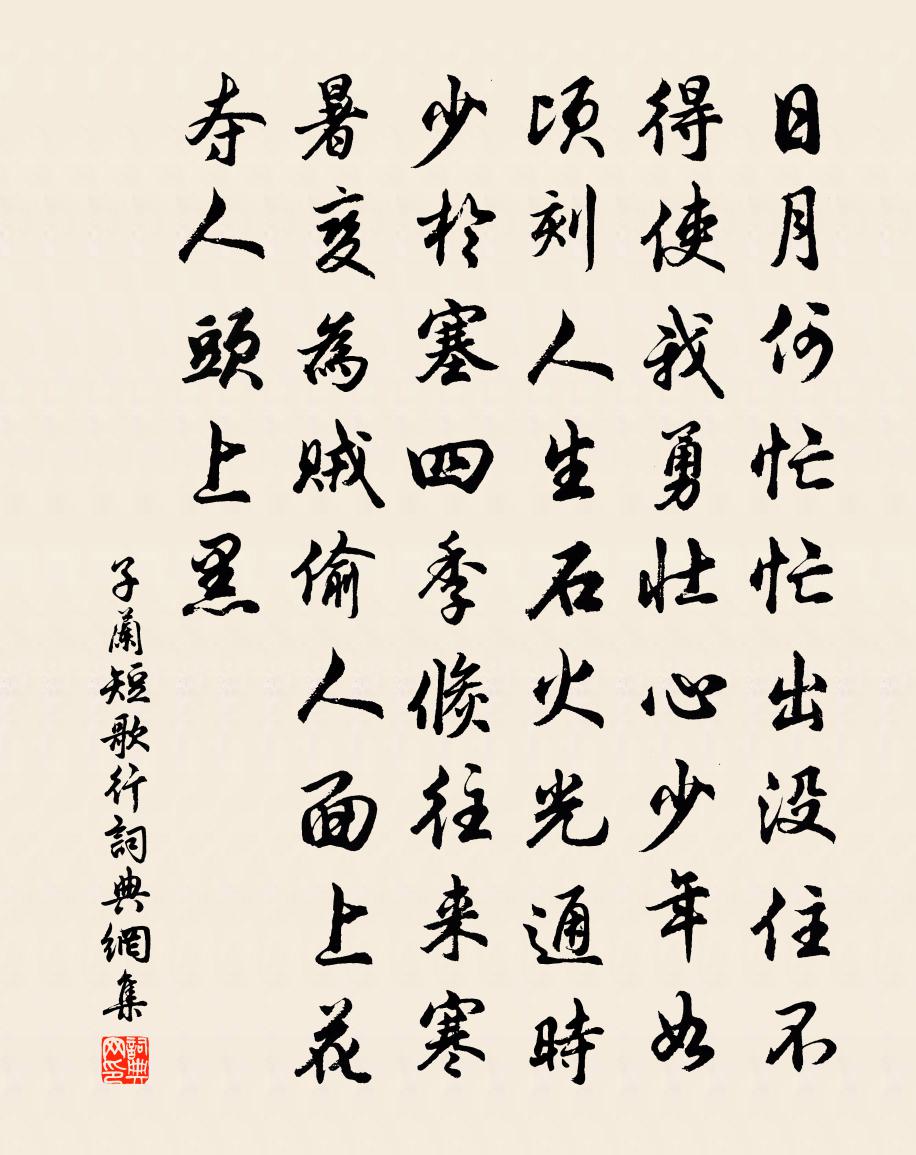 日月何忙忙出没住不
得使我勇壮心少年如
頃刻人生石火光通時
少於塞四季倏往来寒
暑变為賊偷人面上花
夺人頭上黑
子蘭短歌行詞典網集
詞典网印